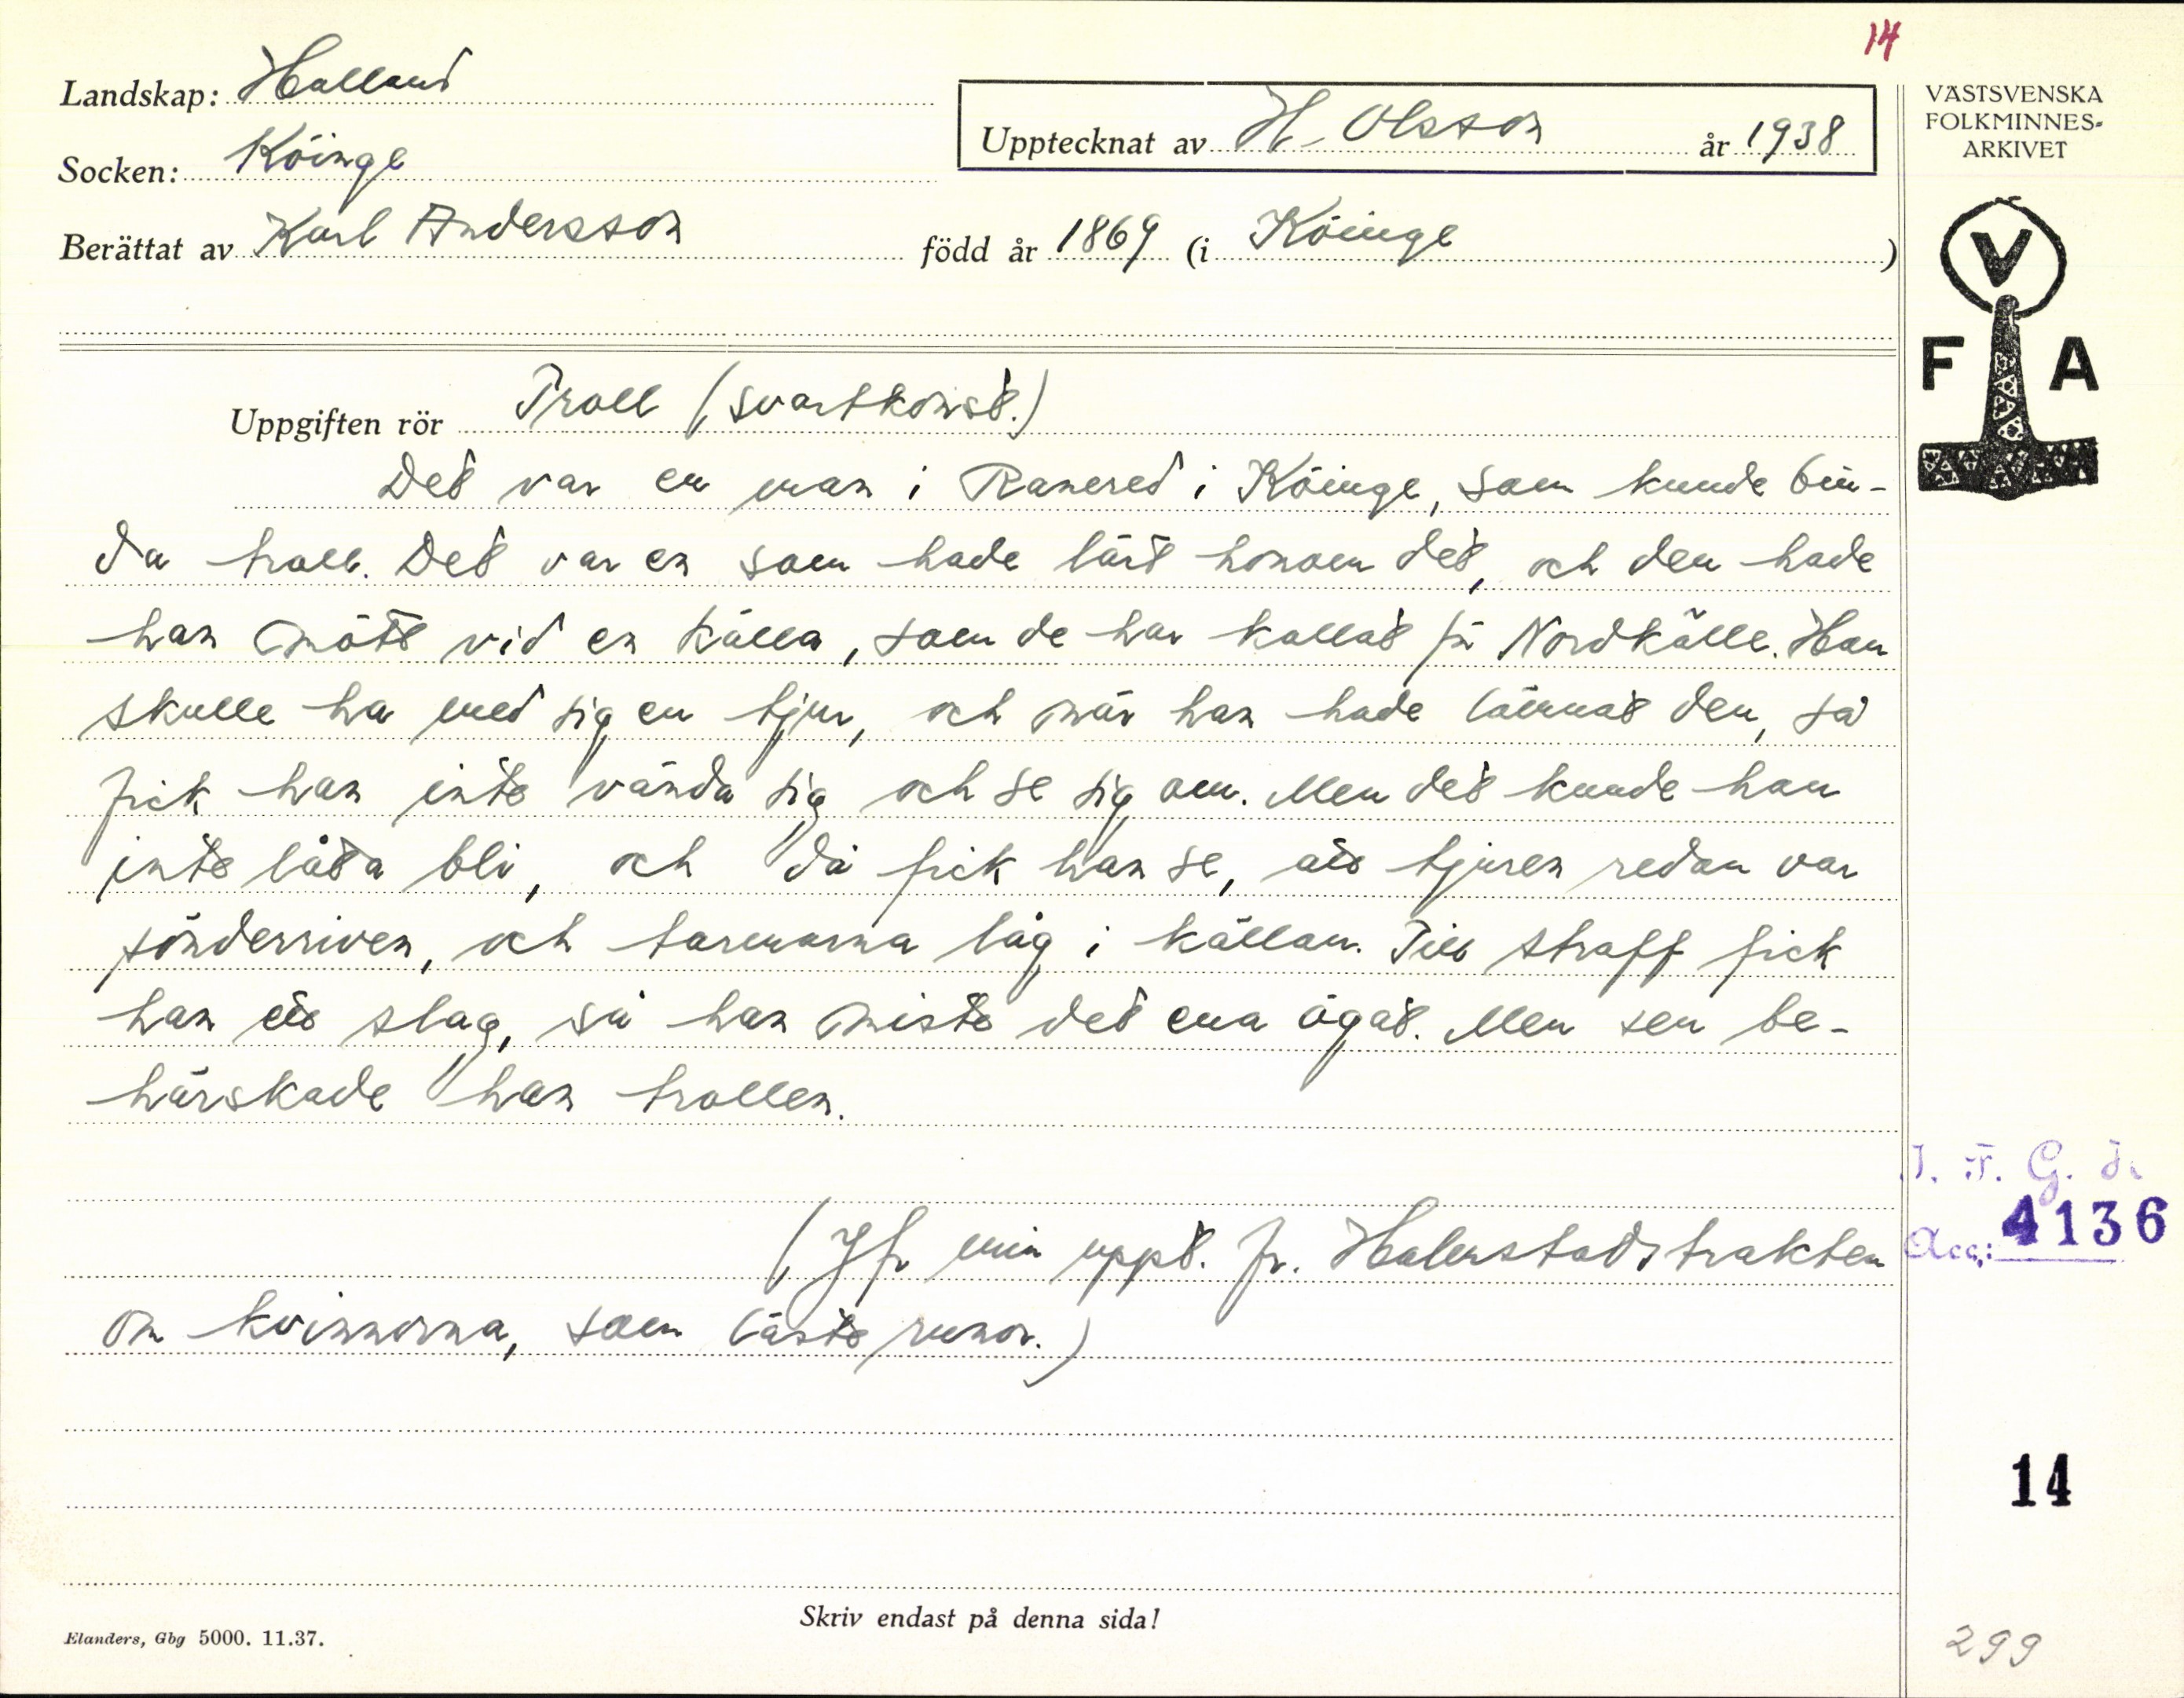 14
Landskap: Halland
Socken: Köinge
Upptecknat av H. Olsson år 1938
Berättat av Karl Andersson född år 1869 (i Köinge)
VÄSTSVENSKA
FOLKMINNES-
ARKIVET
V
F A
Uppgiften rör Troll (svartkonst.)
Det var en man i Ranered i Köinge, som kunde bin-
da troll. Det var en som hade lärt honom det, och den hade
han mött vid en källa, som de har kallat för Nordkälle. Han
skulle ha med sig en tjur, och när han hade lämnat den, så
fick han inte vända sig och se sig om. Men det kunde han
inte låta bli, och då fick han se, att tjuren redan var
sönderriven, och tarmarna låg i källan. Till straff fick
han ett slag, så han miste det ena ögat. Men sen be-
härskade han trollen.
(Jfr min uppt. fr. Halmstadstrakten
om kvinnorna, som läste runor.)
I. F. G. H.
Acc: 4136
14
Skriv endast på denna sida!
Elanders, Gbg 5000. 11.37.
299